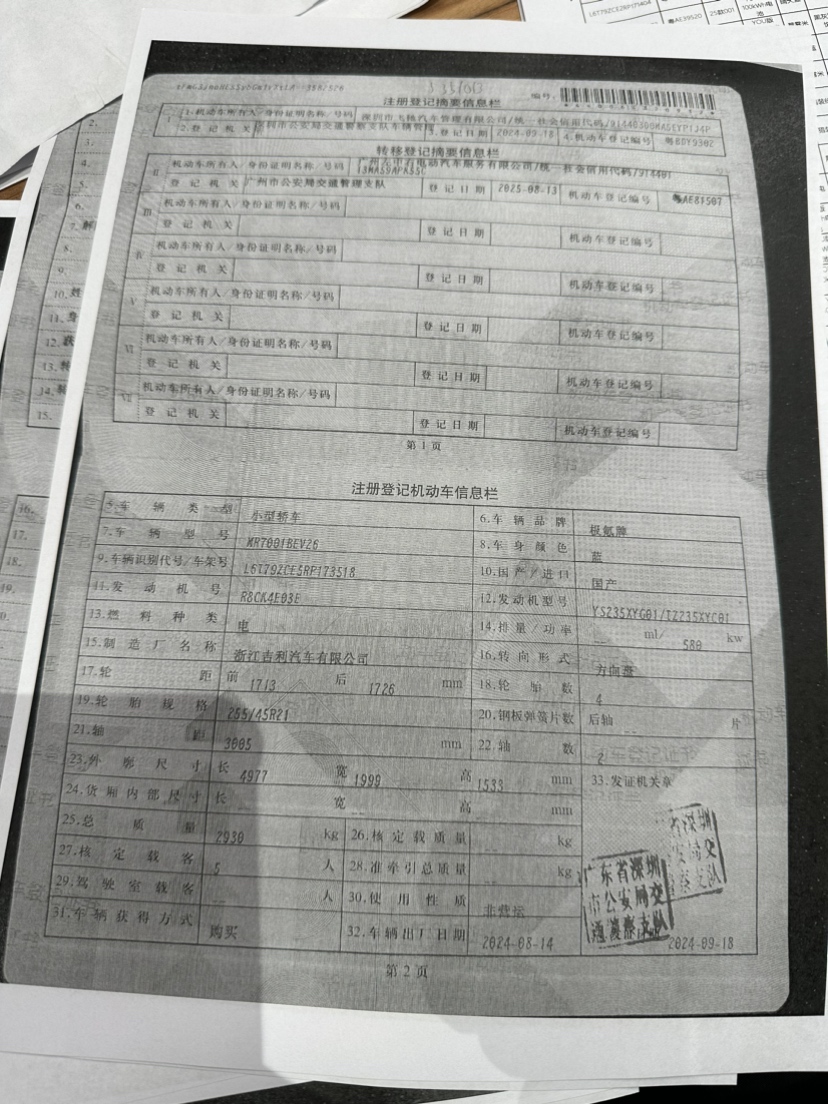 编号:
注册登记摘要信息栏
1.机动车所有人/身份证明名称/号码
2.登记机关 登记日期 2024-09-18 4.机动车登记编号 粤BDY9302
转移登记摘要信息栏
Ⅱ 机动车所有人/身份证明名称/号码
登记机关 广州市公安局交通警察支队 登记日期 2025-08-13 机动车登记编号
Ⅲ 机动车所有人/身份证明名称/号码
登记机关 登记日期 机动车登记编号
Ⅳ 机动车所有人/身份证明名称/号码
登记机关 登记日期 机动车登记编号
Ⅴ 机动车所有人/身份证明名称/号码
登记机关 登记日期 机动车登记编号
Ⅵ 机动车所有人/身份证明名称/号码
登记机关 登记日期 机动车登记编号
Ⅶ 机动车所有人/身份证明名称/号码
登记机关 登记日期 机动车登记编号
第 1 页
注册登记机动车信息栏
5.车辆类型 小型轿车 6.车辆品牌 极氪牌
7.车辆型号 MR7001BEV26 8.车身颜色 蓝
9.车辆识别代号/车架号 L6T79ZCE5RP173518 10.国产/进口 国产
11.发动机号 R8CK4E03E 12.发动机型号 YS235XYG01/TZ235XYC01
13.燃料种类 电 14.排量/功率 ml/ 580 kw
15.制造厂名称 浙江吉利汽车有限公司 16.转向形式 方向盘
17.轮距 前 1713 后 1726 mm 18.轮胎数 4
19.轮胎规格 255/45R21 20.钢板弹簧片数 后轴 片
21.轴距 3005 mm 22.轴数 2
23.外廓尺寸 长 4977 宽 1999 高 1533 mm 33.发证机关章
24.货厢内部尺寸 长 宽 高 mm
25.总质量 2930 kg 26.核定载质量 kg
27.核定载客 5 人 28.准牵引总质量 kg
29.驾驶室载客 人 30.使用性质 非营运
31.车辆获得方式 购买 32.车辆出厂日期 2024-08-14 2024-09-18
广东省深圳
市公安局交
通警察支队
第 2 页